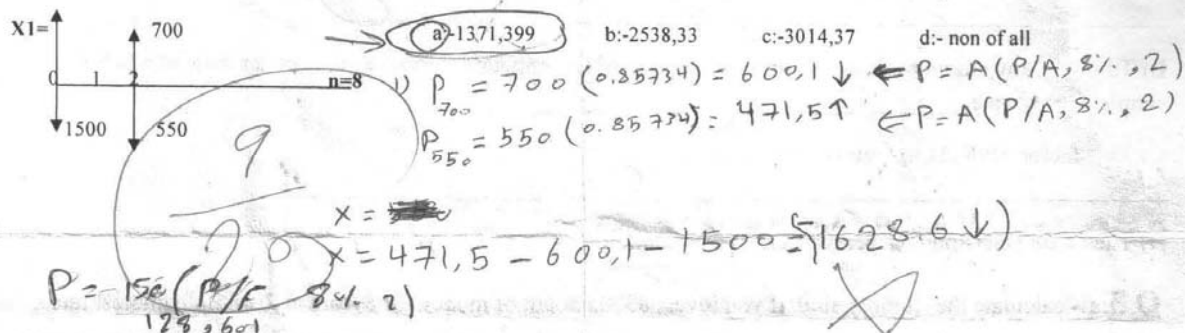 X1=
700
a:-1371,399 b:-2538,33 c:-3014,37 d:- non of all
0 1 2 n=8
1500 550
1) P700 = 700 (0.85734) = 600,1 ↓ ← P = A(P/A, 8%, 2)
P550 = 550 (0.85734) = 471,5 ↑ ← P = A(P/A, 8%, 2)
9
20
x =
x = 471,5 - 600,1 - 1500 = 1628.6 ↓
P = 150 (P/F 8% 2)
128,601
Q